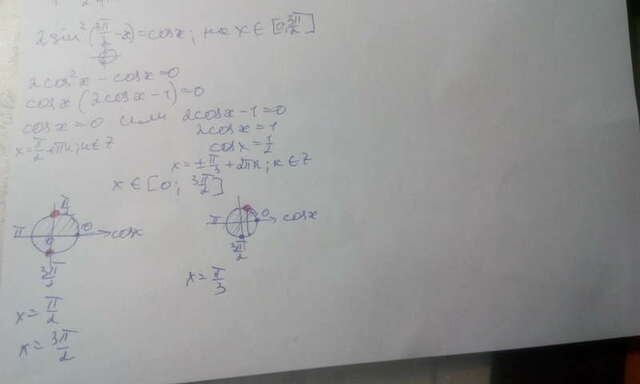 2sin²(3π/2 - x) = cosx; на x ∈ [0; 3π/2]
2cos²x - cosx = 0
cosx (2cosx - 1) = 0
cosx = 0 или 2cosx - 1 = 0
x = π/2 + πn; n ∈ Z 2cosx = 1
cosx = 1/2
x = ± π/3 + 2πn; n ∈ Z
x ∈ [0; 3π/2]
π/2
π 0 cosx
0
3π/2
π 0 cosx
3π/2
x = π/3
x = π/2
x = 3π/2